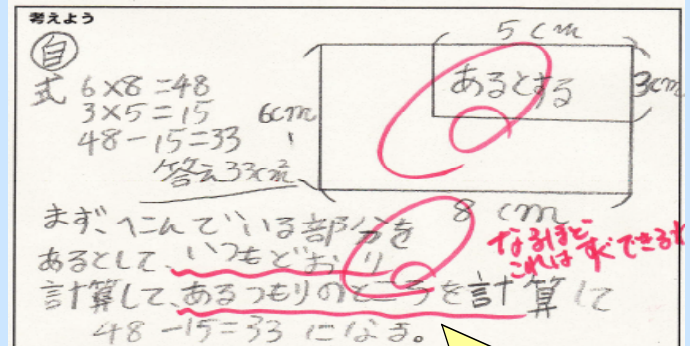 考えよう
自
式 6×8=48
3×5=15
48-15=33
答え33cm²
5cm
あるとする
3cm
6cm
8cm
まず、へこんでいる部分を
あるとして、いつもどおり
計算して、あるつもりのところを計算して
48-15=33になる。
なるほど
これは すぐできるね